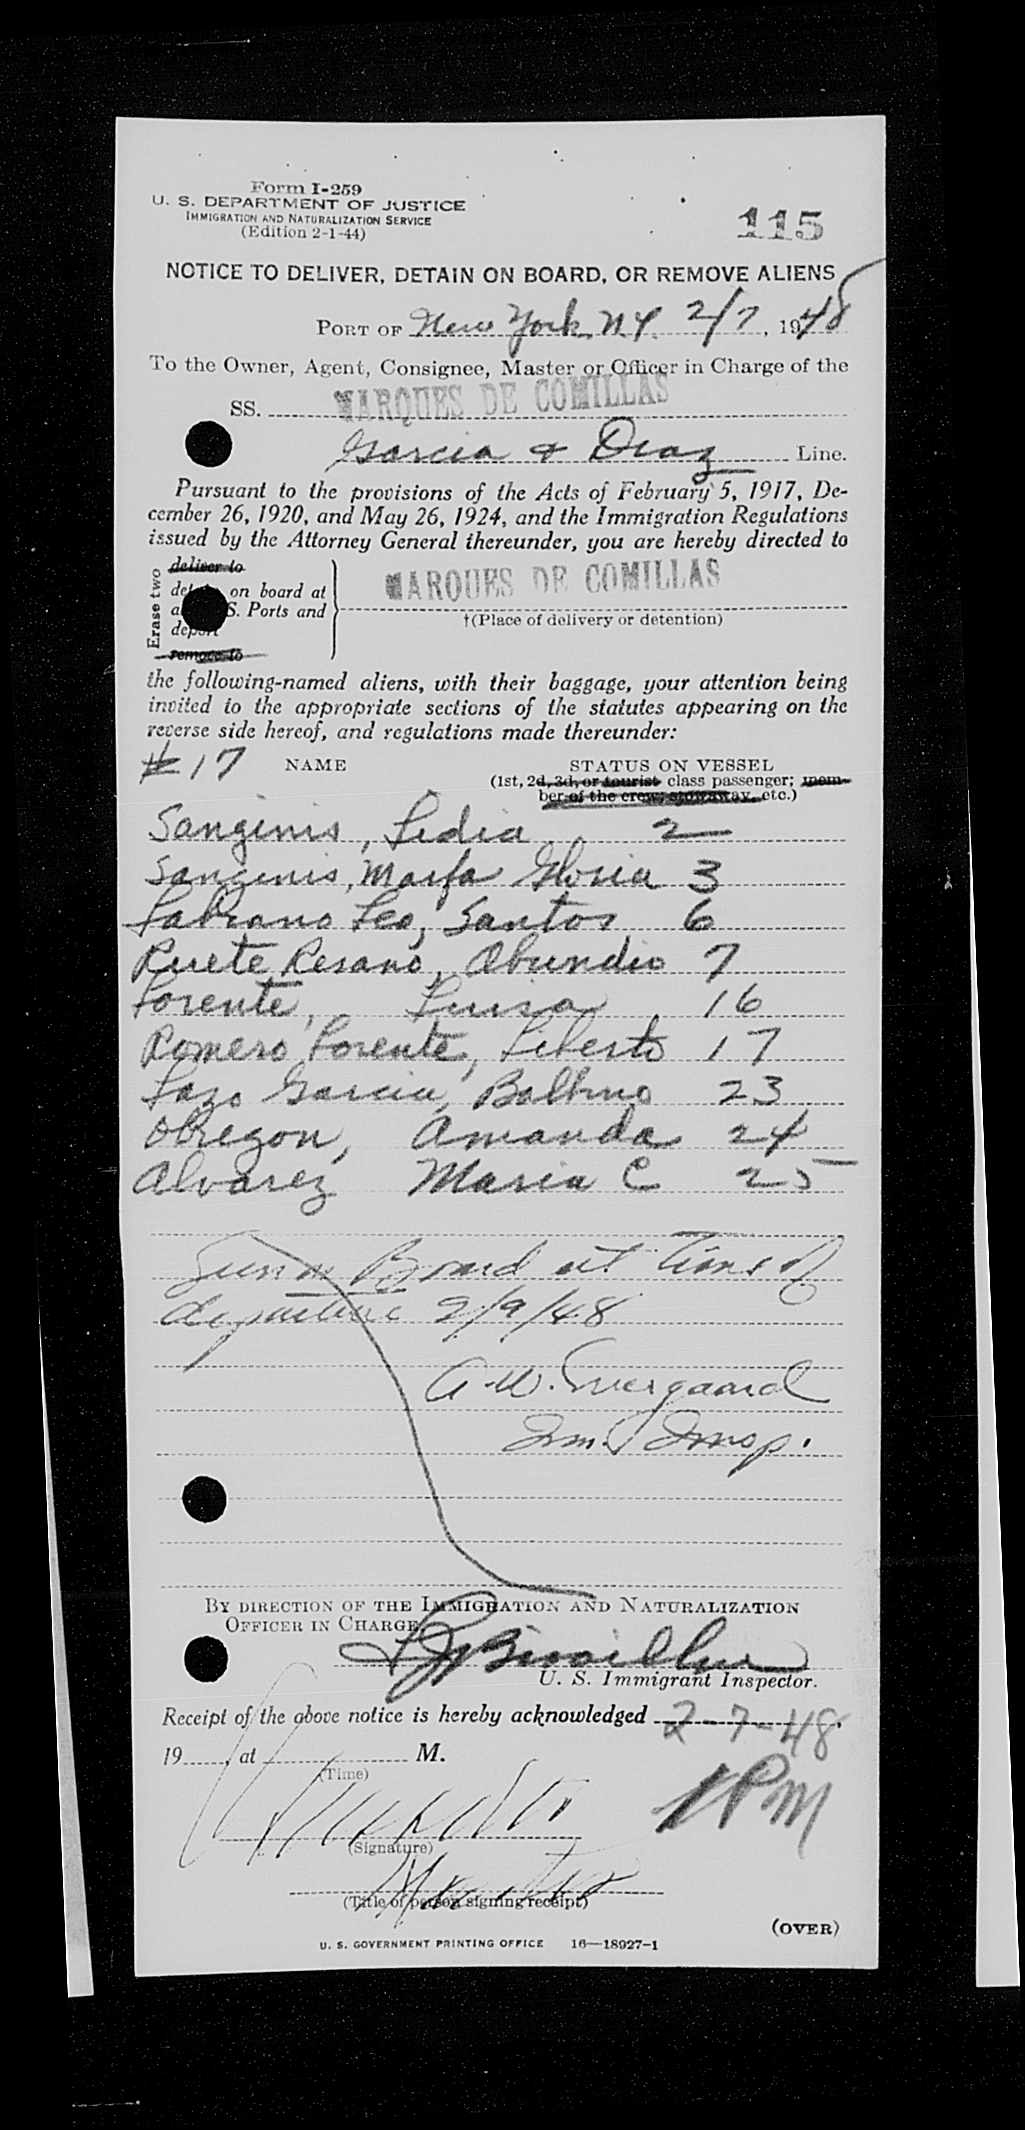 Form I-259
U. S. DEPARTMENT OF JUSTICE
IMMIGRATION AND NATURALIZATION SERVICE
(Edition 2-1-44)
115
NOTICE TO DELIVER, DETAIN ON BOARD, OR REMOVE ALIENS
PORT OF New York, N.Y. 2/7, 1948
To the Owner, Agent, Consignee, Master or Officer in Charge of the
SS. MARQUES DE COMILLAS
Garcia & Diaz Line.
Pursuant to the provisions of the Acts of February 5, 1917, De-
cember 26, 1920, and May 26, 1924, and the Immigration Regulations
issued by the Attorney General thereunder, you are hereby directed to
Erase two
deliver to
on board at
S. Ports and
deport
remove to
MARQUES DE COMILLAS
†(Place of delivery or detention)
the following-named aliens, with their baggage, your attention being
invited to the appropriate sections of the statutes appearing on the
reverse side hereof, and regulations made thereunder:
#17 NAME STATUS ON VESSEL
(1st, 2d, 3d, or tourist class passenger; mem-
ber of the crew, stowaway, etc.)
Sanginis, Lidia 2
Sanginis, Gloria 3
Leo, Santos 6
Resano, Abundio 7
Lorente, Luisa 16
Romero Lorente, Liberto 17
Lazo Garcia, Balbino 23
Obregon, Amanda 24
Alvarez Maria C 25
Seen on Board at time of
departure 2/9/48
A. W.
Im. Insp.
BY DIRECTION OF THE IMMIGRATION AND NATURALIZATION
OFFICER IN CHARGE
U. S. Immigrant Inspector.
Receipt of the above notice is hereby acknowledged 2-7-48,
19 , at M.
(Time)
1 PM
(Signature)
(Title of person signing receipt)
(OVER)
U. S. GOVERNMENT PRINTING OFFICE 16—18927-1